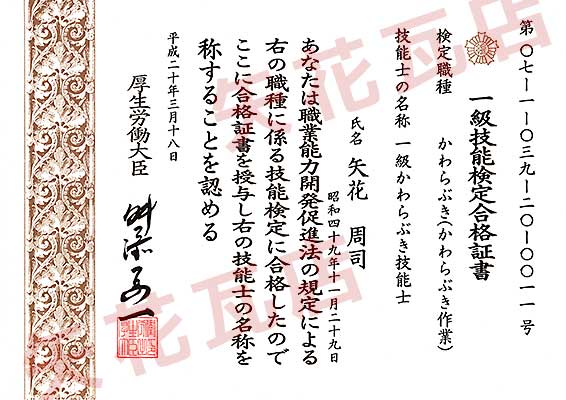 第〇七ー一ー〇三九ー二〇ー〇〇一一号
一級技能検定合格証書
検定職種　かわらぶき(かわらぶき作業)
技能士の名称　一級かわらぶき技能士
氏名　矢花　周司
昭和四十九年十一月二十九日
あなたは職業能力開発促進法の規定による
右の職種に係る技能検定に合格したので
ここに合格証書を授与し右の技能士の名称を
称することを認める
平成二十年三月十八日
厚生労働大臣
舛添要一
矢花瓦店
矢花瓦店